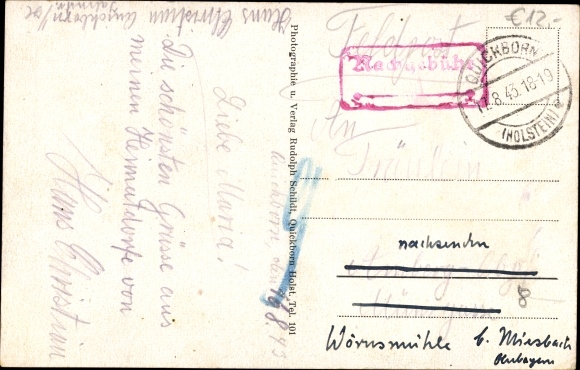 Hans Christian Quickborn/Ho
Quickborn den 19.8.43
Liebe Maria!
Die schönsten Grüsse aus
meinem Heimatdorfe von
Hans Christian
Photographie u. Verlag Rudolph Schildt, Quickborn Holst, Tel. 101
€12,-
Feldpost
Nachgebühr
QUICKBORN
17.8.43.18-19
(HOLSTEIN)
An
Fräulein
nachsenden
Wörnsmühle b. Miesbach
Oberbayern